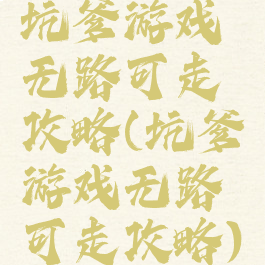 坑爹游戏
无路可走
攻略(坑爹
游戏无路
可走攻略)